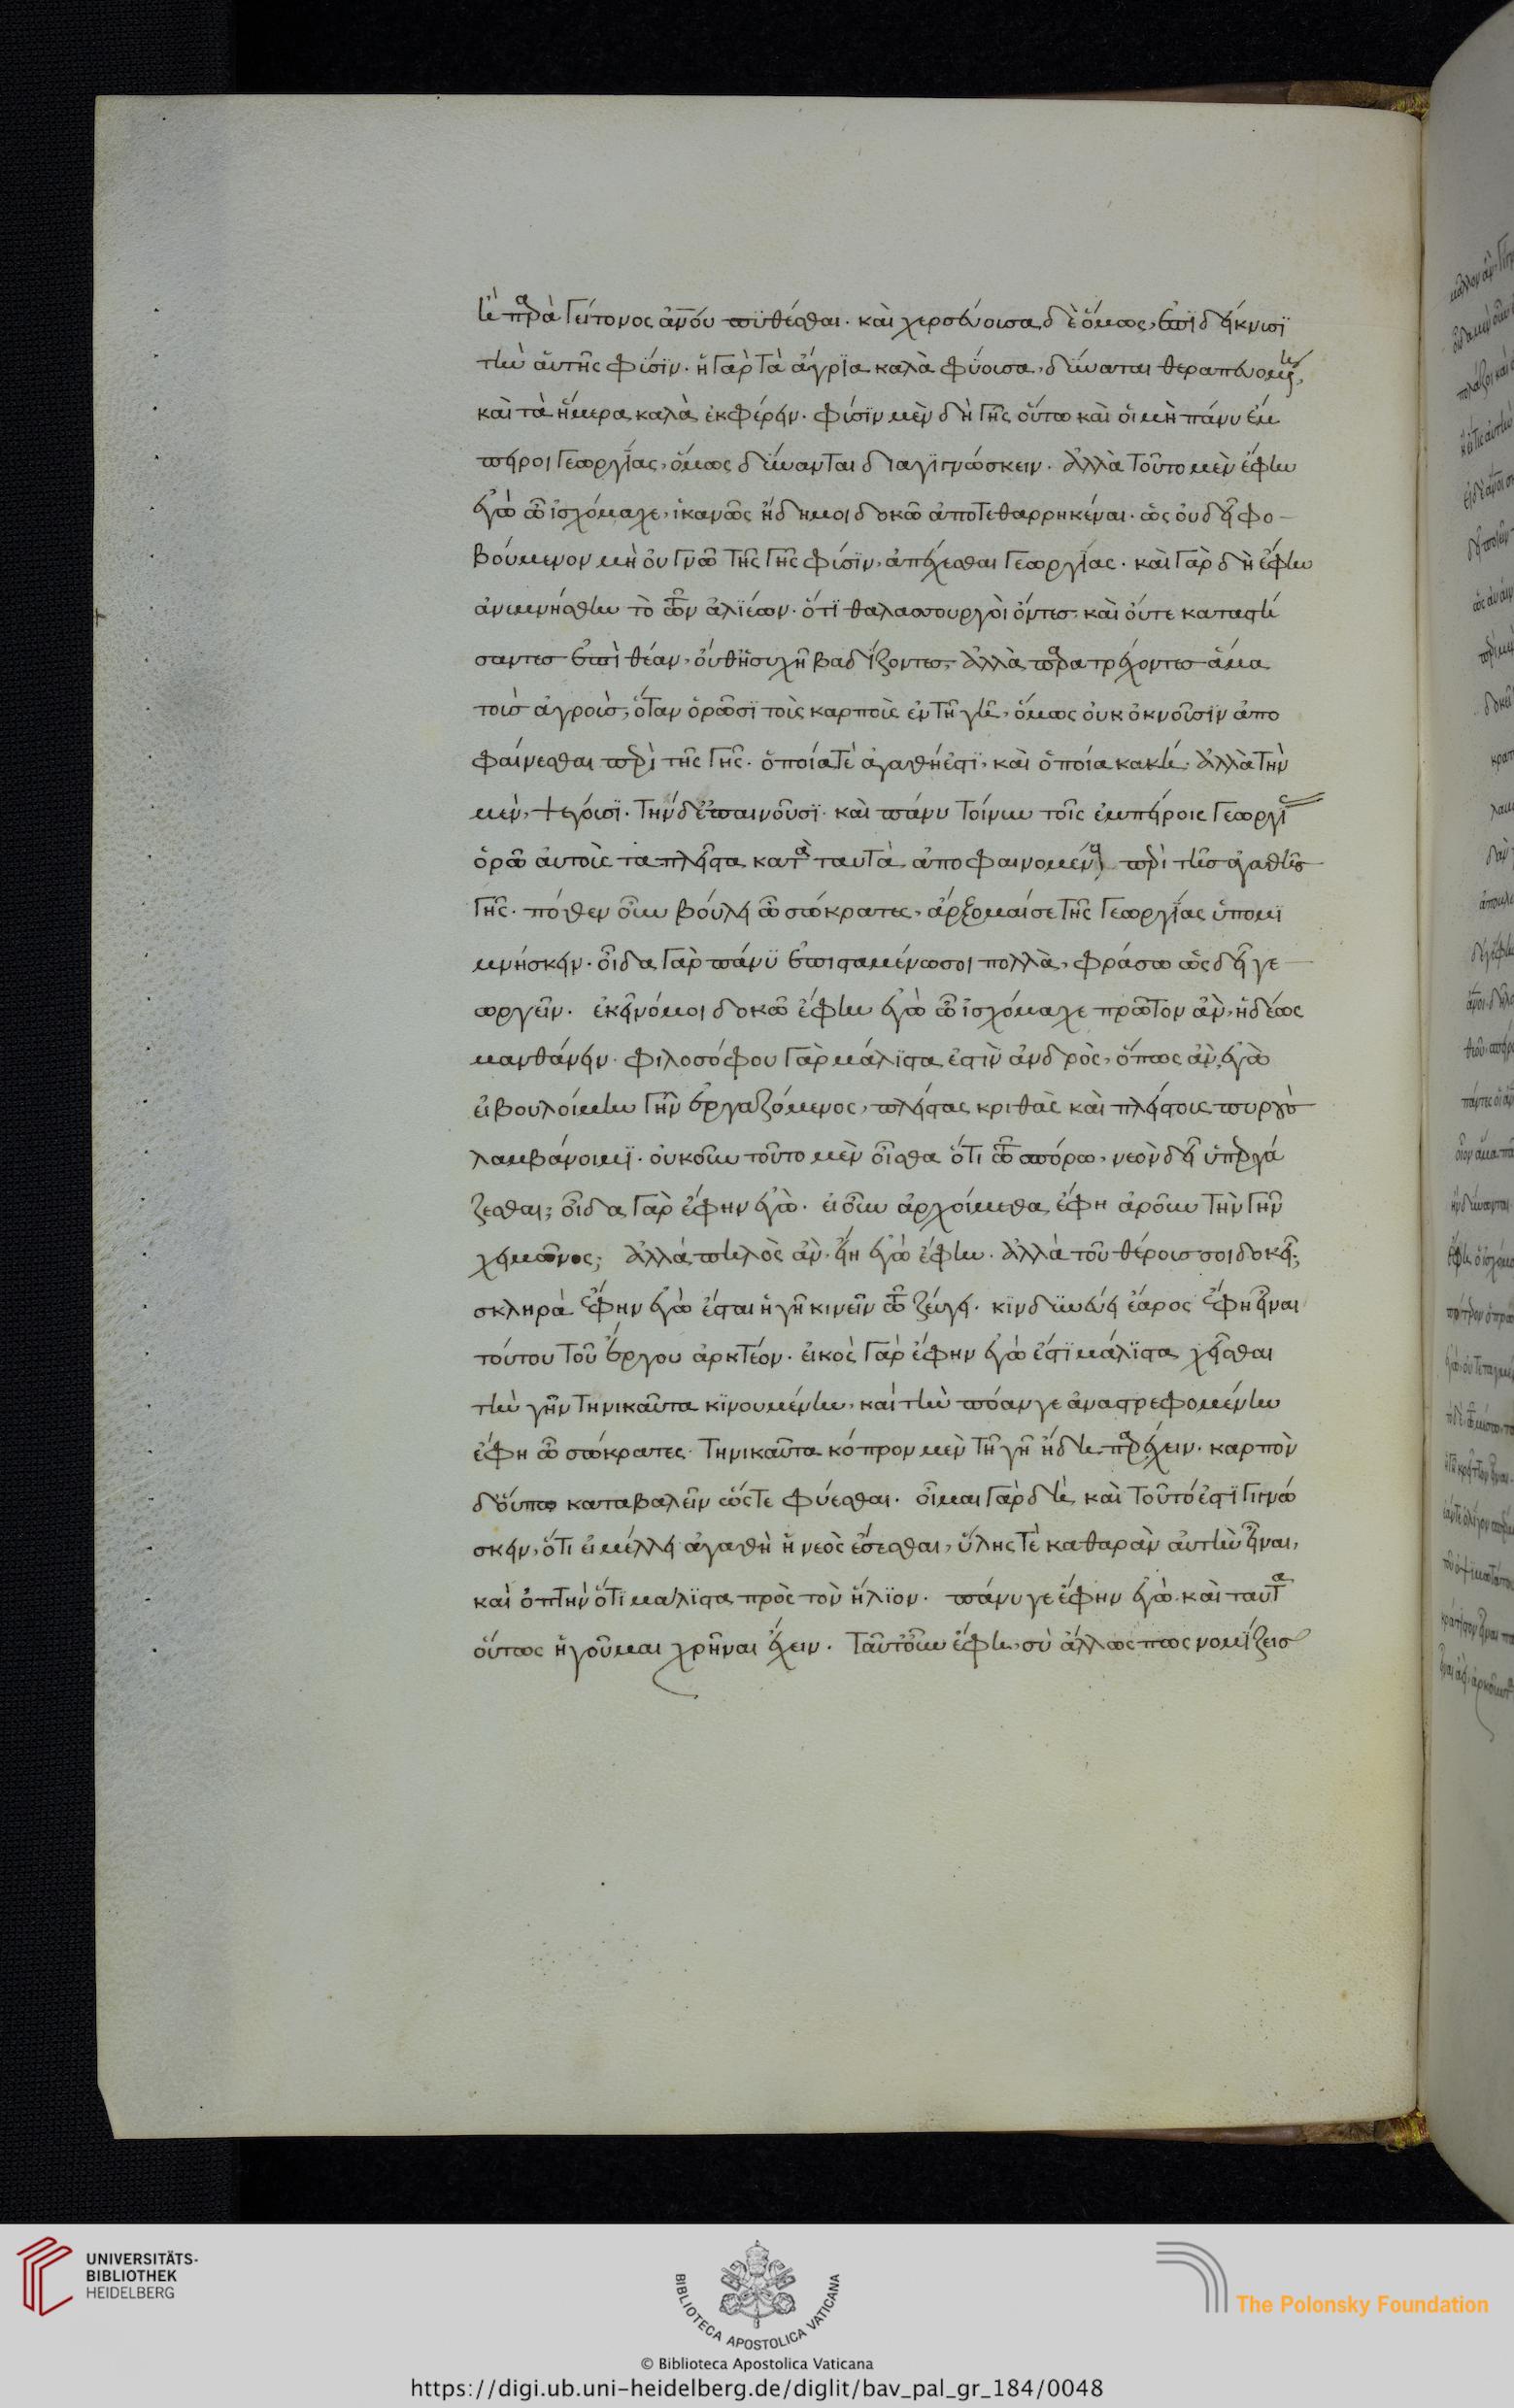 ἢ παρὰ γείτονος ἀν̅ου πυθέσθαι. καὶ χερσεύουσα δὲ ὅμως, ἐπιδείκνυσι
τὴν αὑτῆς φύσιν. ἡ γὰρ τὰ ἄγρια καλὰ φύουσα, δύναται θεραπευομένη,
καὶ τὰ ἥμερα καλὰ ἐκφέρειν. φύσιν μὲν δὴ γῆς οὕτω καὶ οἱ μὴ πάνυ ἔμ
πειροι γεωργίας, ὅμως δύνανται διαγιγνώσκειν. ἀλλὰ τοῦτο μὲν ἔφην
ἐγὼ ὦ ἰσχόμαχε, ἱκανῶς ἤδη μοι δοκῶ ἀποτεθαρρηκέναι. ὡς οὐ δεῖ φο-
βούμενον μὴ οὐ γνῶ τῆς γῆς φύσιν, ἀπέχεσθαι γεωργίας. καὶ γὰρ δὴ ἔφην
ἀνεμνήσθην τὸ τῶν ἁλιέων. ὅτι θαλαττουργοὶ ὄντες, καὶ οὔτε καταστή
σαντες ἐπὶ θέαν, οὔθ' ἥσυχῆ βαδίζοντες, ἀλλὰ παρατρέχοντες ἅμα
τοὺς ἀγροὺς, ὅταν ὁρῶσι τοὺς καρποὺς ἐν τῆ γῆ, ὅμως οὐκ ὀκνοῦσιν ἀπο
φαίνεσθαι περὶ τῆς γῆς. ὁποία τὲ ἀγαθή ἐστι, καὶ ὁποία κακή. ἀλλὰ τὴν
μὲν, ψέγουσι. τὴν δ' ἐπαινοῦσι. καὶ πάνυ τοίνυν τοῖς ἐμπείροις γεωργίας
ὁρῶ αὐτοὺς τα πλεῖστα κατὰ ταυτὰ ἀποφαινομένους περὶ τῆς ἀγαθῆς
γῆς. πόθεν οὖν βούλει ὦ σώκρατες, ἄρξομαί σε τῆς γεωργίας ὑπομι
μνήσκειν. οἶδα γὰρ πάνυ ἐπισταμένω σοι πολλὰ, φράσω ὡς δεῖ γε
ωργεῖν. ἐκεῖνό μοι δοκῶ ἔφην ἐγὼ ὦ ἰσχόμαχε πρῶτον ἂν, ἡδέως
μανθάνειν. φιλοσόφου γὰρ μάλιστα ἐστὶν ἀνδρὸς, ὅπως ἂν, ἐγὼ
εἰ βουλοίμην γῆν ἐργαζόμενος, πλείστας κριθὰς καὶ πλείστους πυροὺς
λαμβάνοιμι. οὐκοῦν τοῦτο μὲν οἶσθα ὅτι τῶ σπόρω, νεὸν δεῖ ὑπεργά
ζεσθαι; οἶδα γὰρ ἔφην ἐγὼ. εἰ οὖν ἀρχοίμεθα ἔφη ἀροῦν τὴν γῆν
χειμῶνος; ἀλλὰ πηλὸς ἂν. εἴη ἐγὼ ἔφην. ἀλλὰ τοῦ θέρους σοι δοκεῖ;
σκληρὰ ἔφην ἐγὼ ἔσται ἡ γῆ κινεῖν τῶ ζεύγει. κινδυνεύει ἔαρος ἔφη εἶναι
τούτου τοῦ ἔργου ἀρκτέον. εἰκὸς γὰρ ἔφην ἐγὼ ἐστι μάλιστα χεῖσθαι
τὴν γῆν τηνικαῦτα κινουμένην, καὶ τὴν πόαν γε ἀναστρεφομένην
ἔφη ὦ σώκρατες. τηνικαῦτα κόπρον μὲν τῆ γῆ ἤδη παρέχειν. καρπὸν
δ' οὔπω καταβαλεῖν ὥστε φύεσθαι. οἶμαι γὰρ δὴ καὶ τοῦτό ἐστι γιγνώ
σκειν, ὅτι εἰ μέλλει ἀγαθὴ ἡ νεὸς ἔσεσθαι, ὕλης τὲ καθαρὰν αὐτὴν εἶναι,
καὶ ὀπτὴν ὅτι μαλιστα πρὸς τὸν ἥλιον. πάνυ γε ἔφην ἐγὼ. καὶ ταῦτα
οὕτως ἡγοῦμαι χρῆναι ἔχειν. ταῦτ' οὖν ἔφη, σὺ ἄλλως πως νομίζεις
UNIVERSITÄTS-
BIBLIOTHEK
HEIDELBERG
BIBLIOTECA APOSTOLICA VATICANA
© Biblioteca Apostolica Vaticana
The Polonsky Foundation
https://digi.ub.uni-heidelberg.de/diglit/bav_pal_gr_184/0048